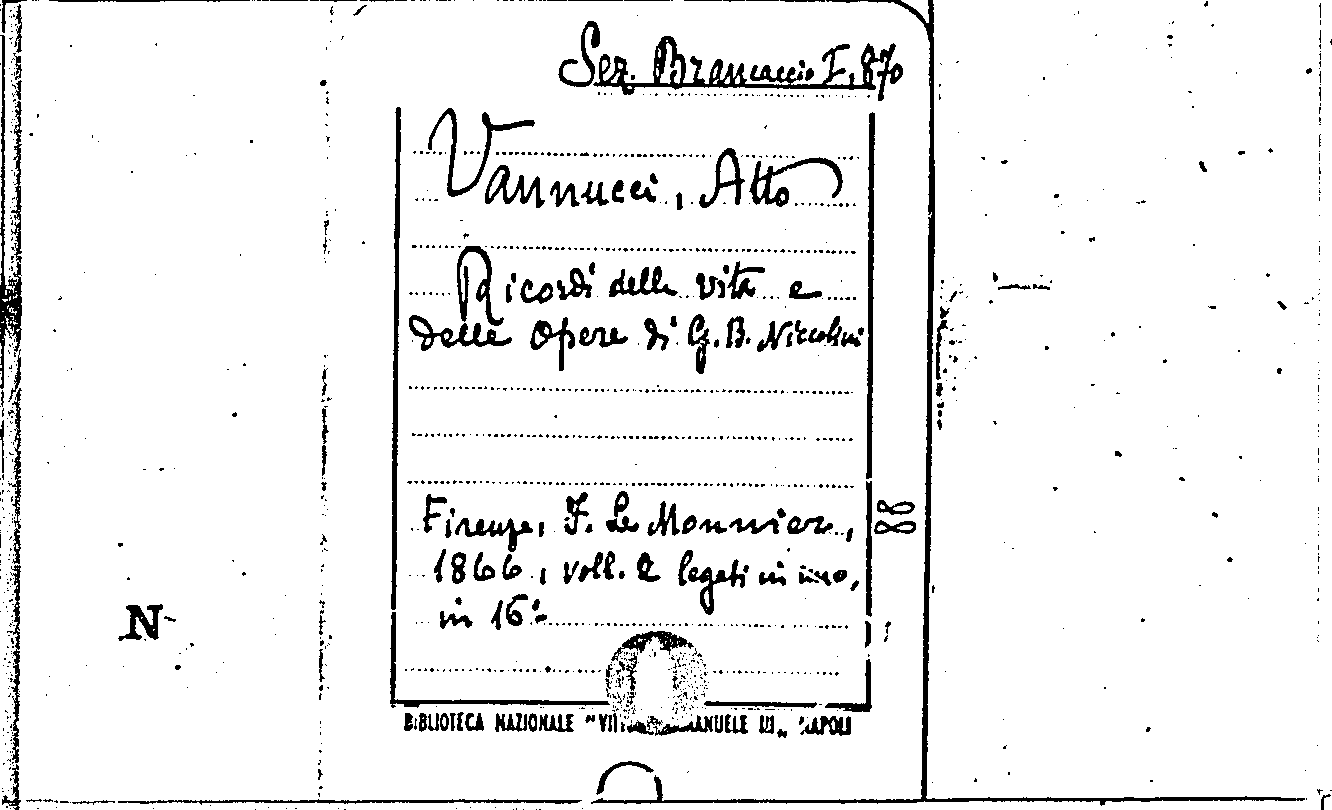 Sez. Brancaccio F. 870
Vannucci, Atto
Ricordi della vita e
delle Opere di G. B. Niccolini
Firenze, F. Le Monnier,
88
1866, voll. 2 legati in uno,
in 16°
N
BIBLIOTECA NAZIONALE "VITTORIO EMANUELE III„ NAPOLI